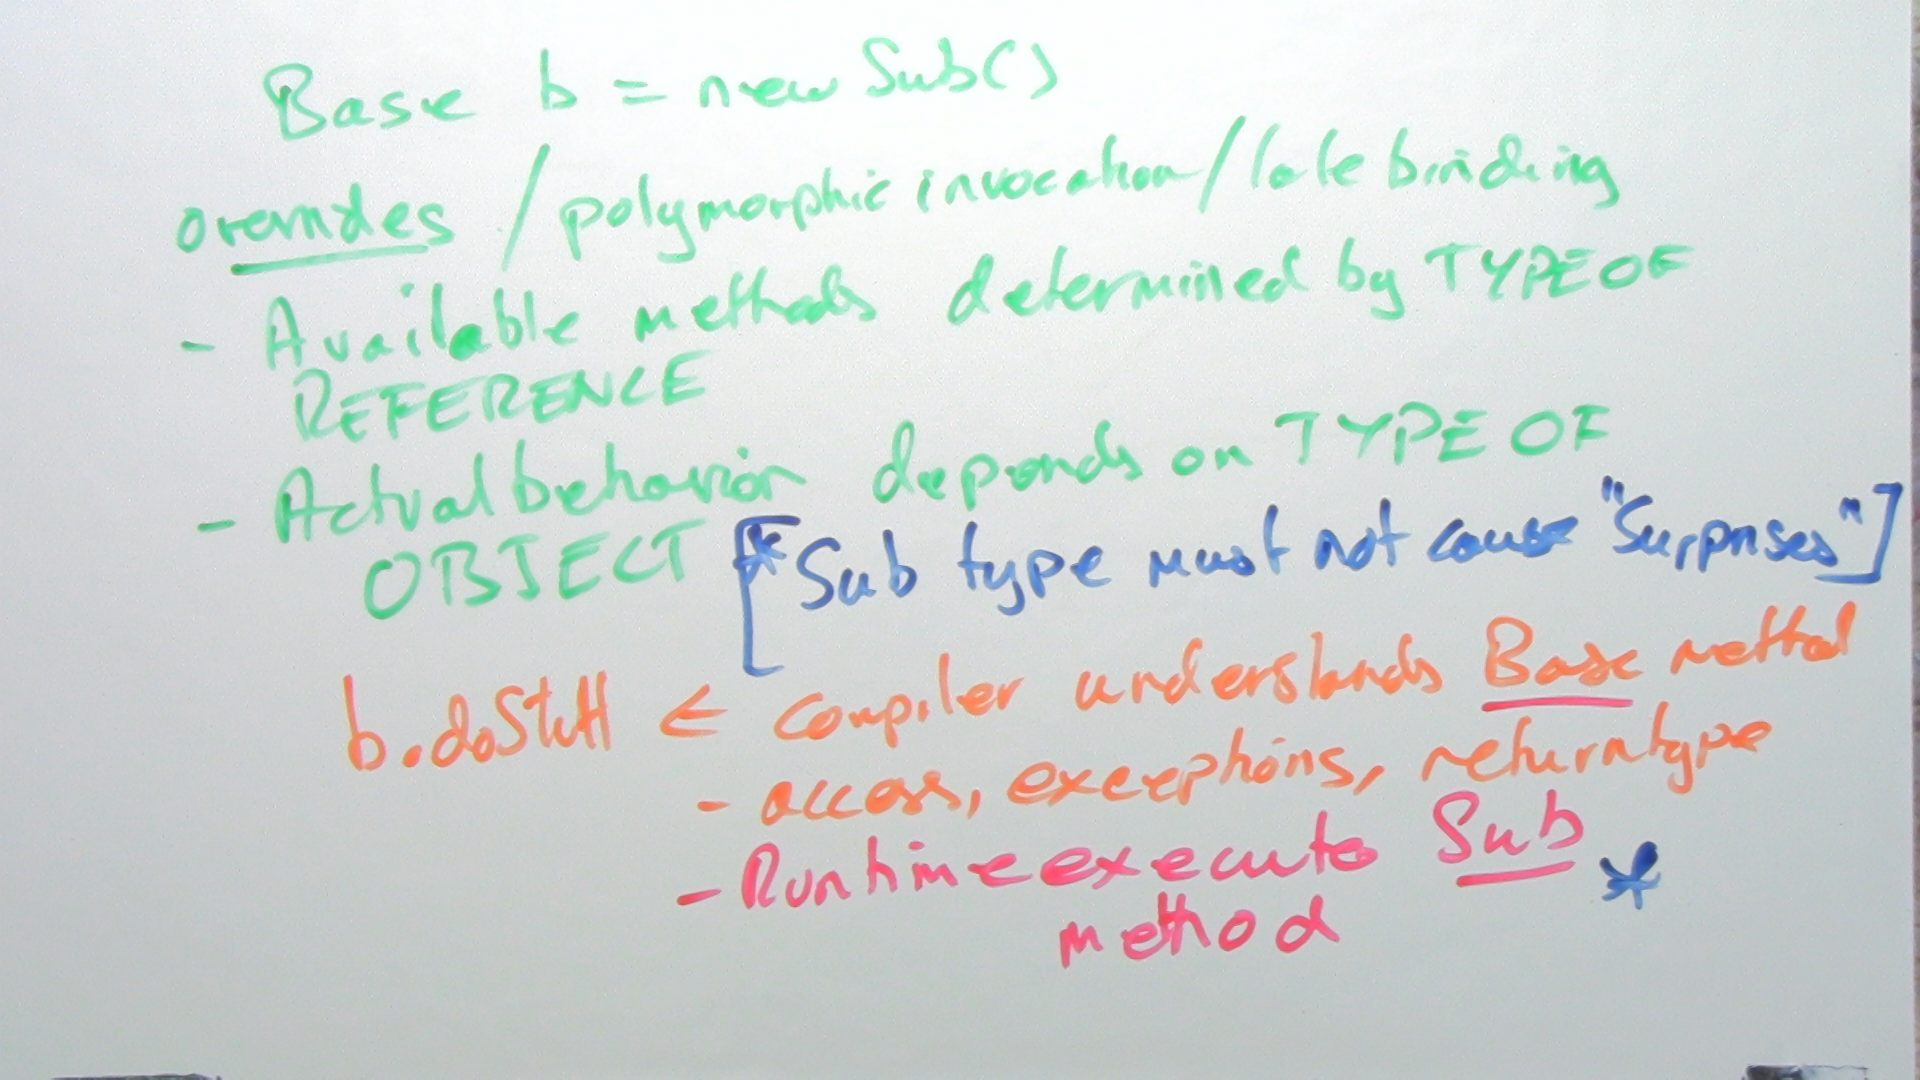 Base b = new Sub()
overrides / polymorphic invocation / late binding
- Available methods determined by TYPE OF
REFERENCE
- Actual behavior depends on TYPE OF
OBJECT [* Sub type must not cause "Surprises"]
b.doStuff ← compiler understands Base method
- access, exceptions, return type
- Runtime executes Sub *
method